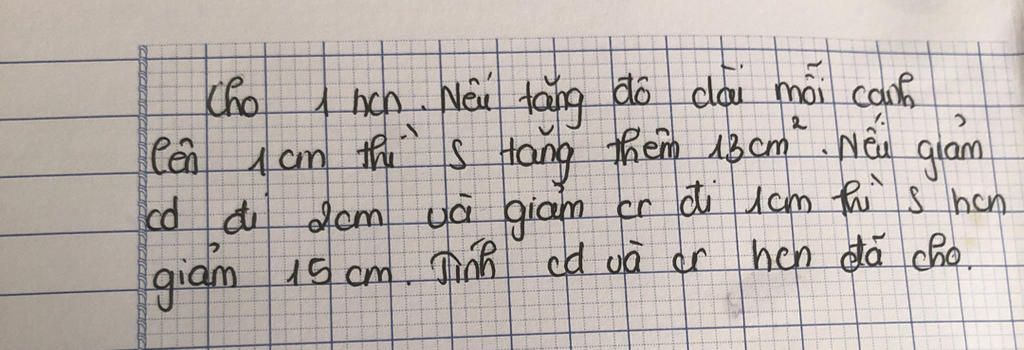 Cho 1 hcn. Nếu tăng độ dài mỗi cạnh
lên 1cm thì S tăng thêm 13cm². Nếu giảm
cd đi 2cm và giảm cr đi 1cm thì S hcn
giảm 15 cm. Tính cd và cr hcn đã cho.